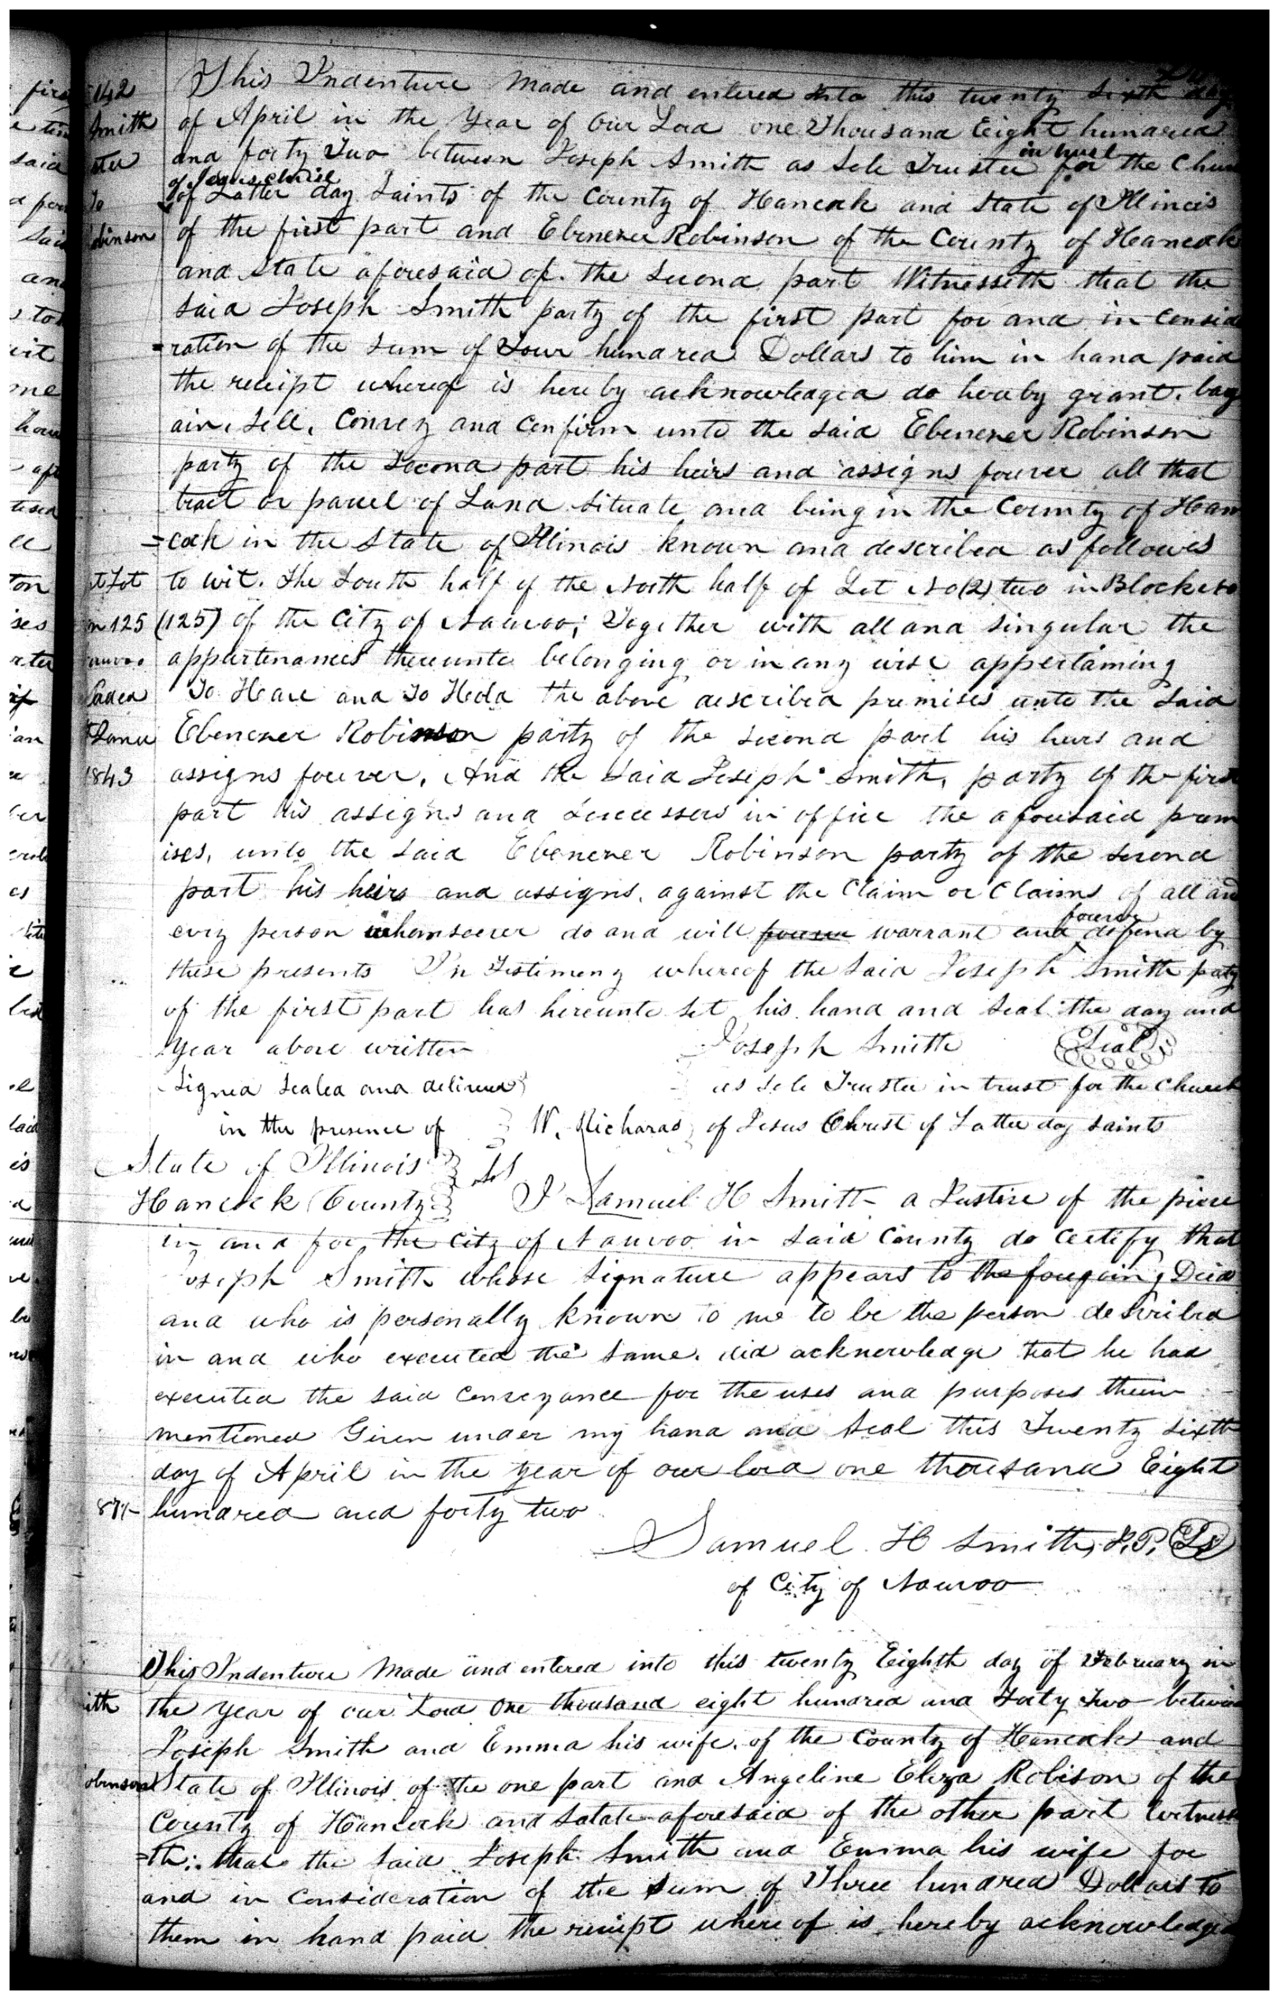 This Indenture Made and entered into this twenty Sixth day
of April in the Year of Our Lord one Thousand Eight hundred
and forty Two between Joseph Smith as Sole Trustee in trust for the Chur
of Jesus christ of Latter day Saints of the County of Hancock and State of Illinois
of the first part and Ebenezer Robinson of the County of Hancock
and State aforesaid of the Second part Witnesseth that the
said Joseph Smith party of the first part for and in Consid
=ration of the sum of Four hundred Dollars to him in hand paid
the receipt whereof is hereby acknowledged do hereby grant, barg
ain, Sell, Convey and Confirm unto the said Ebenezer Robinson
party of the Second part his heirs and assigns forever all that
tract or parcel of Land Situate and being in the County of Han
=cock in the State of Illinois known and described as followes
to wit. The South half of the North half of Lot No (2) two in Block No
(125) of the City of Nauvoo; Together with all and singular the
appurtenances thereunto belonging or in any wise appertaining
To Have and To Hold the above described premises unto the Said
Ebenezer Robinson party of the second part his heirs and
assigns forever, And the Said Joseph Smith, party of the first
part his assigns and Successors in office the aforesaid prem
ises, unto the Said Ebenezer Robinson party of the second
part his heirs and assigns, against the Claim or Claims of all and
every person whomsoever do and will forever warrant and forever defend by
these presents In Testimony whereof the Said Joseph Smith party
of the first part has hereunto set his hand and Seal the day and
Year above written Joseph Smith Seal
Signed Sealed and delivered as sole Trustee in trust for the Church
in the presence of W. Richards of Jesus Christ of Latter day saints
State of Illinois
Hancock County I Samuel H Smith a Justice of the piece
in and for the City of Nauvoo in Said County do certify that
Joseph Smith whose Signature appears to the foregoing Deed
and who is personally known to me to be the person described
in and who executed the same. did acknowledge that he had
executed the said Conveyance for the uses and purposes therein
mentioned Given under my hand and Seal this Twenty sixth
day of April in the year of our lord one thousand Eight
hundred and forty two
Samuel H Smith, J.P. LS
of City of Nauvoo
This Indenture Made and entered into this twenty Eighth day of February in
the Year of our Lord One thousand eight hundred and Forty Two between
Joseph Smith and Emma his wife, of the County of Hancock and
State of Illinois of the one part and Angeline Eliza Robison of the
County of Hancock and Satate aforesaid of the other part Witness
=th: that the Said Joseph Smith and Emma his wife for
and in Consideration of the Sum of Three hundred Dollars to
them in hand paid the reciept where of is hereby acknowledged